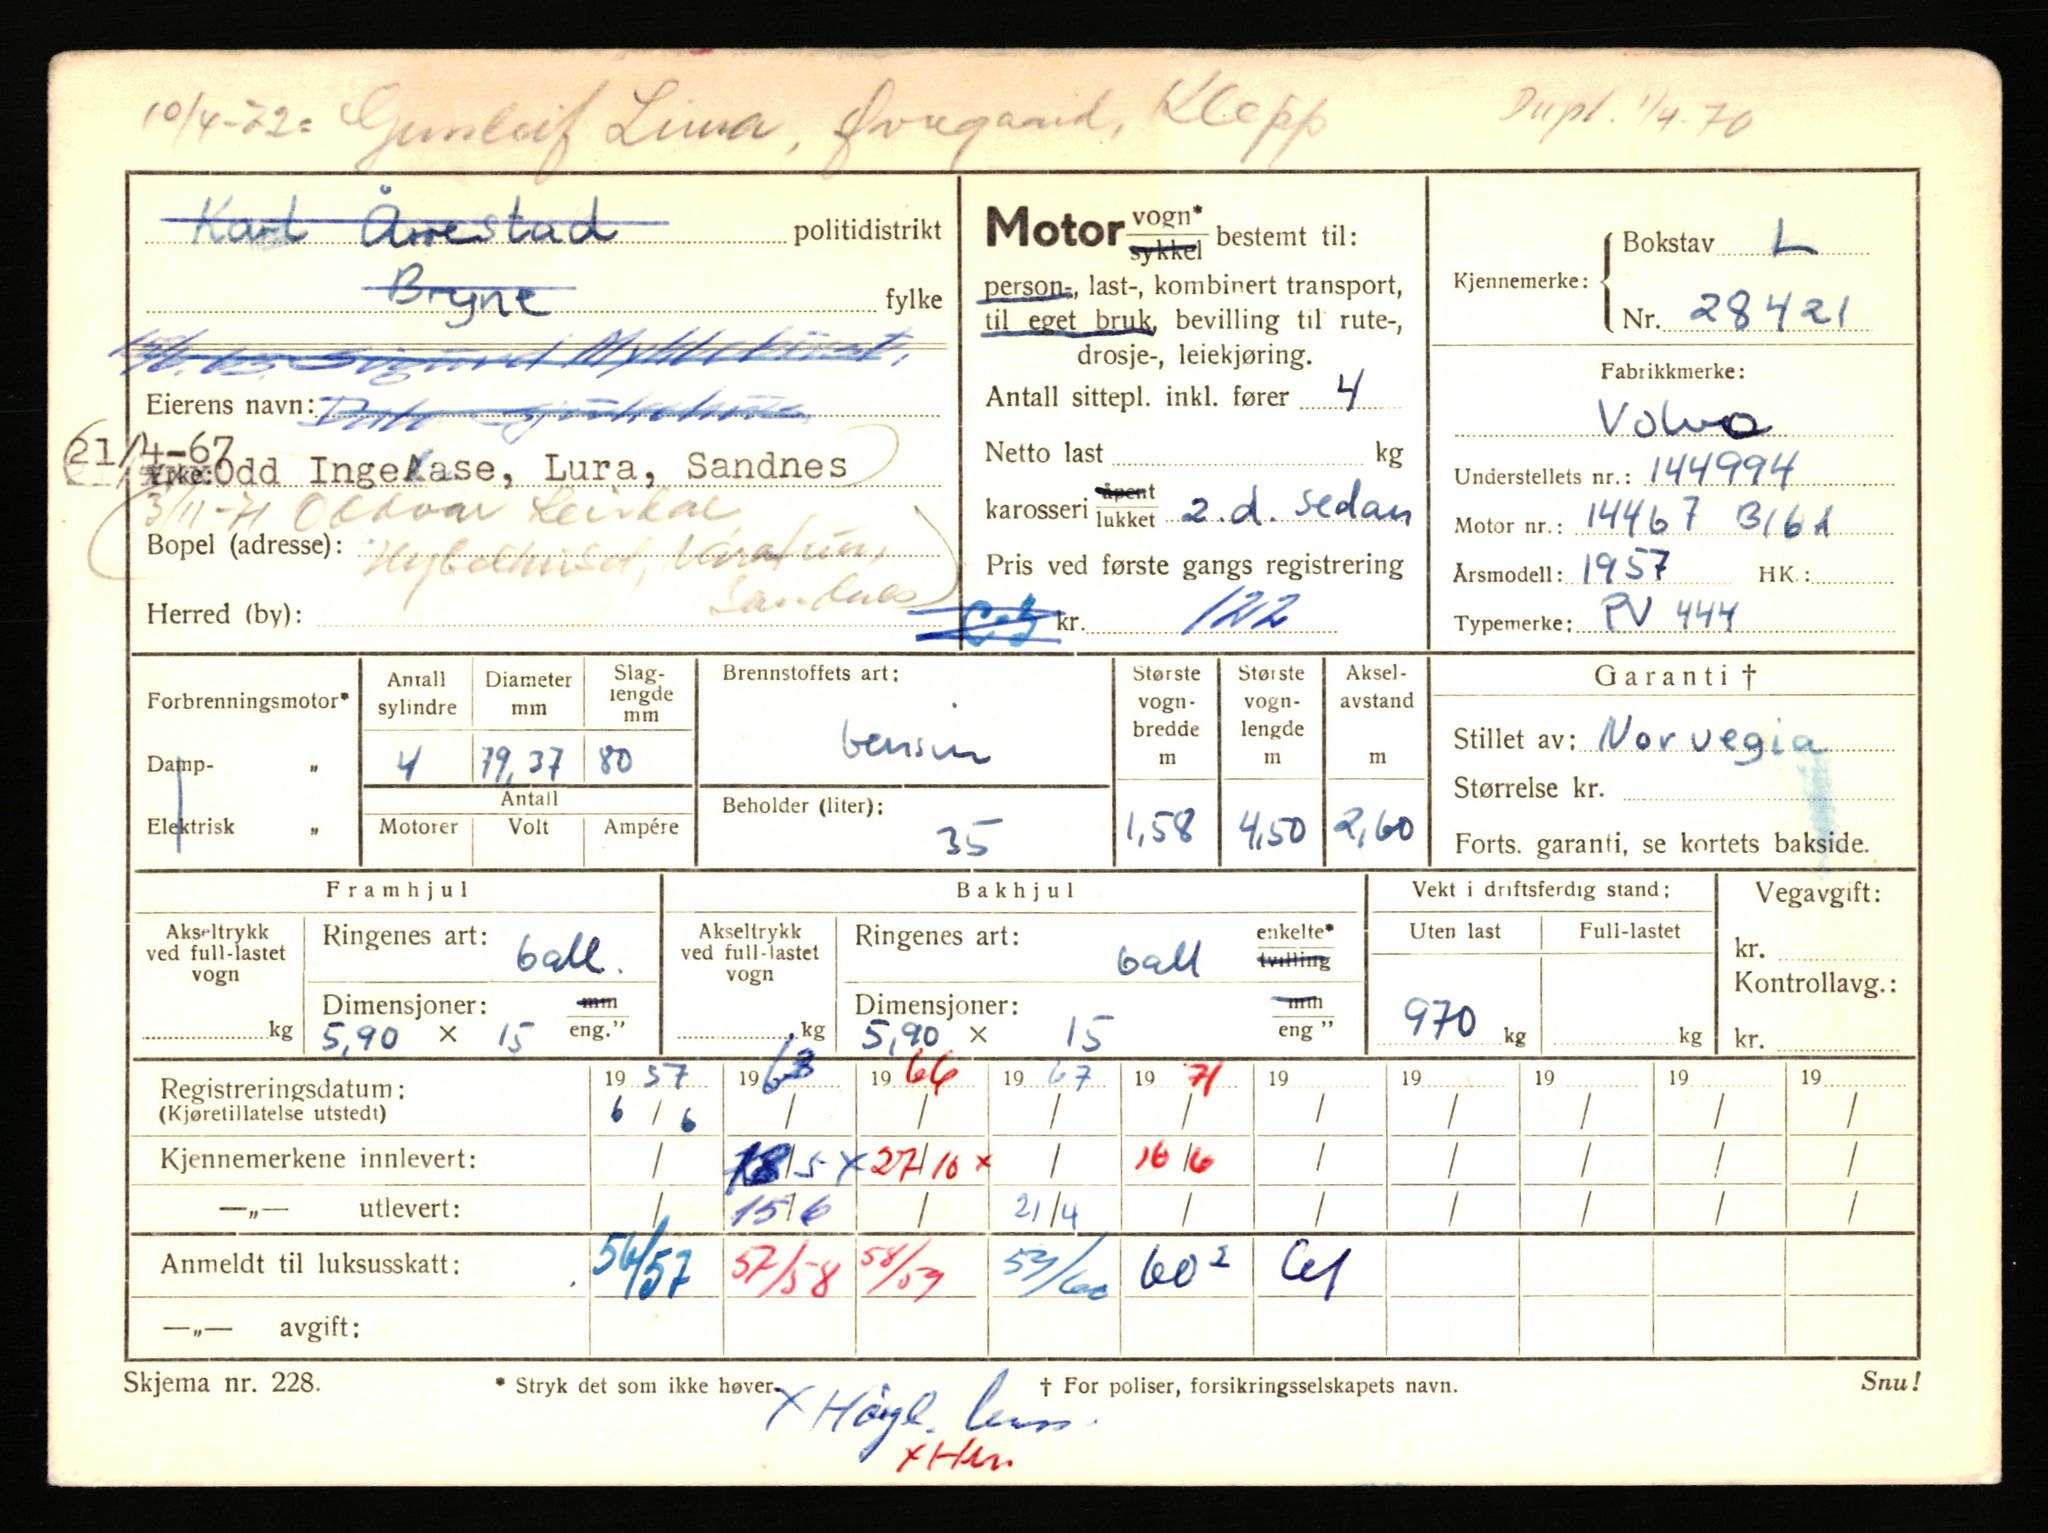 10/4-72: Gunleif Lima, Øvregaard, Klepp
Dupl. 1/4-70
Karl Årrestad politidistrikt
Bryne fylke
Sigurd
Eierens navn:
21/4-67
Yrke: Odd Inge Aase, Lura, Sandnes
3/11-71 Oddvar Leirdal
Bopel (adresse): Hybelhuset, Varatun,
Sandnes
Herred (by):
Motor vogn* / sykkel bestemt til:
person-, last-, kombinert transport,
til eget bruk, bevilling til rute-,
drosje-, leiekjøring.
Antall sittepl. inkl. fører 4
Netto last kg
karosseri åpent / lukket 2.d. sedan
Pris ved første gangs registrering
kr. 122
Kjennemerke: Bokstav L
Nr. 28421
Fabrikkmerke:
Volvo
Understellets nr.: 144994
Motor nr.: 14467 B16A
Årsmodell: 1957 HK.:
Typemerke: PV 444
Forbrenningsmotor*
Damp- „
Elektrisk „
Antall sylindre
Diameter mm
Slag-lengde mm
4 79,37 80
Antall
Motorer Volt Ampére
Brennstoffets art:
bensin
Beholder (liter):
35
Største vogn-bredde m
1,58
Største vogn-lengde m
4,50
Aksel-avstand m
2,60
Garanti †
Stillet av: Norvegia
Størrelse kr.
Forts. garanti, se kortets bakside.
Framhjul
Akseltrykk ved full-lastet vogn
kg
Ringenes art: ball.
Dimensjoner: mm / eng."
5,90 × 15
Bakhjul
Akseltrykk ved full-lastet vogn
kg
Ringenes art: ball enkelte* / tvilling
Dimensjoner: mm / eng "
5,90 × 15
Vekt i driftsferdig stand:
Uten last Full-lastet
970 kg kg
Vegavgift:
kr.
Kontrollavg.:
kr.
Registreringsdatum: 1957 1963 1966 1967 1971 19 19 19 19 19
(Kjøretillatelse utstedt) 6/6 / / / / / / / / /
Kjennemerkene innlevert: / 18/5 x 27/10 x / 16/6 / / / / /
—„— utlevert: / 15/6 / 21/4 / / / / / /
Anmeldt til luksusskatt: 56/57 57/58 58/59 59/60 60² 61
—„— avgift:
Skjema nr. 228.
* Stryk det som ikke høver.
† For poliser, forsikringsselskapets navn.
Snu!